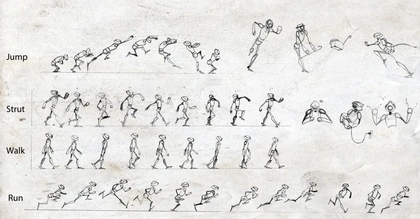 Jump
Strut
Walk
Run